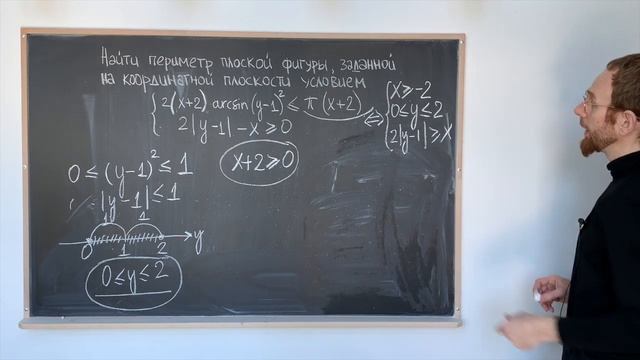 Найти периметр плоской фигуры, заданной
на координатной плоскости условием
{ 2(x+2) arcsin(y-1)² ≤ π(x+2)
2|y-1| - x ≥ 0
⇔ { x ≥ -2
0 ≤ y ≤ 2
2|y-1| ≥ x
x+2 ≥ 0
0 ≤ (y-1)² ≤ 1
|y-1| ≤ 1
1 1
0 1 2 y
0 ≤ y ≤ 2